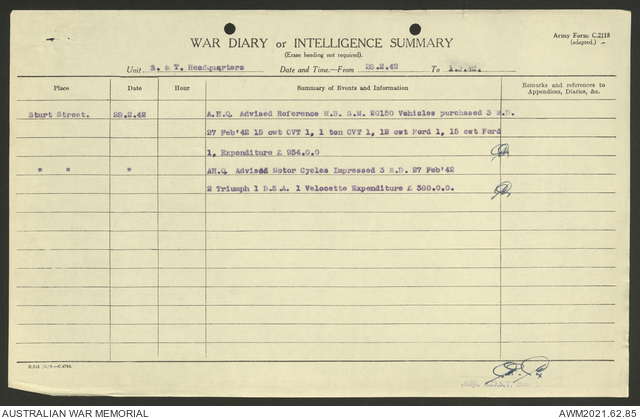 Army Form C.2118
(adapted.)
WAR DIARY or INTELLIGENCE SUMMARY
(Erase heading not required).
Unit S. & T. Headquarters Date and Time.—From 28.2.42 To
Place Date Hour Summary of Events and Information Remarks and references to Appendices, Diaries, &c.
Sturt Street. 28.2.42 A.H.Q. Advised Reference M.B. S.M. 20150 Vehicles purchased 3 M.D.
27 Feb'42 15 cwt CVT 1, 1 ton CVT 1, 12 cwt Ford 1, 15 cwt Ford
1, Expenditure £ 934.0.0
" " " AH.Q. Advised Motor Cycles Impressed 3 M.D. 27 Feb'42
2 Triumph 1 B.S.A. 1 Velocette Expenditure £ 380.0.0.
AUSTRALIAN WAR MEMORIAL AWM2021.62.85